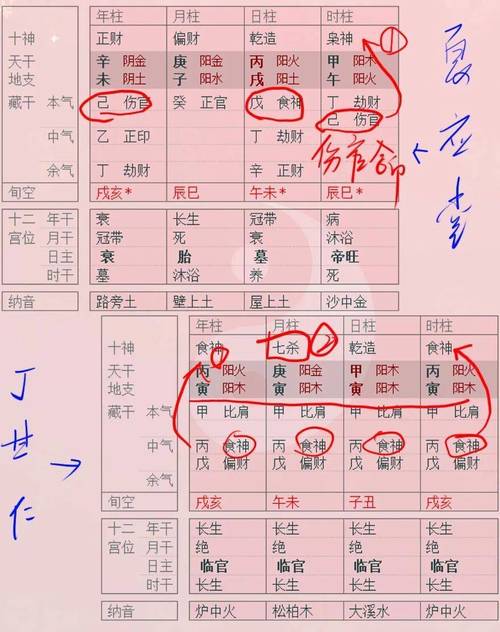 年柱 月柱 日柱 时柱
十神 正财 偏财 乾造 枭神 ①
天干 辛 阴金 庚 阳金 丙 阳火 甲 阳木
地支 未 阴土 子 阳水 戌 阳土 午 阳火
藏干 本气 己 伤官 癸 正官 戊 食神 丁 劫财
己 伤官
中气 乙 正印 丁 劫财
余气 丁 劫财 辛 正财
旬空 戌亥* 辰巳 午未* 辰巳*
伤官合印
夏应堂
十二 年干 衰 长生 冠带 病
宫位 月干 冠带 死 衰 沐浴
日主 衰 胎 墓 帝旺
时干 墓 沐浴 养 死
纳音 路旁土 壁上土 屋上土 沙中金
年柱 月柱 日柱 时柱
十神 食神 七杀 ② 乾造 食神
天干 丙 阳火 庚 阳金 甲 阳木 丙 阳火
地支 寅 阳木 寅 阳木 寅 阳木 寅 阳木
藏干 本气 甲 比肩 甲 比肩 甲 比肩 甲 比肩
中气 丙 食神 丙 食神 丙 食神 丙 食神
戊 偏财 戊 偏财 戊 偏财 戊 偏财
余气
旬空 戌亥 午未 子丑 戌亥
丁甘仁
十二 年干 长生 长生 长生 长生
宫位 月干 绝 绝 绝 绝
日主 临官 临官 临官 临官
时干 长生 长生 长生 长生
纳音 炉中火 松柏木 大溪水 炉中火